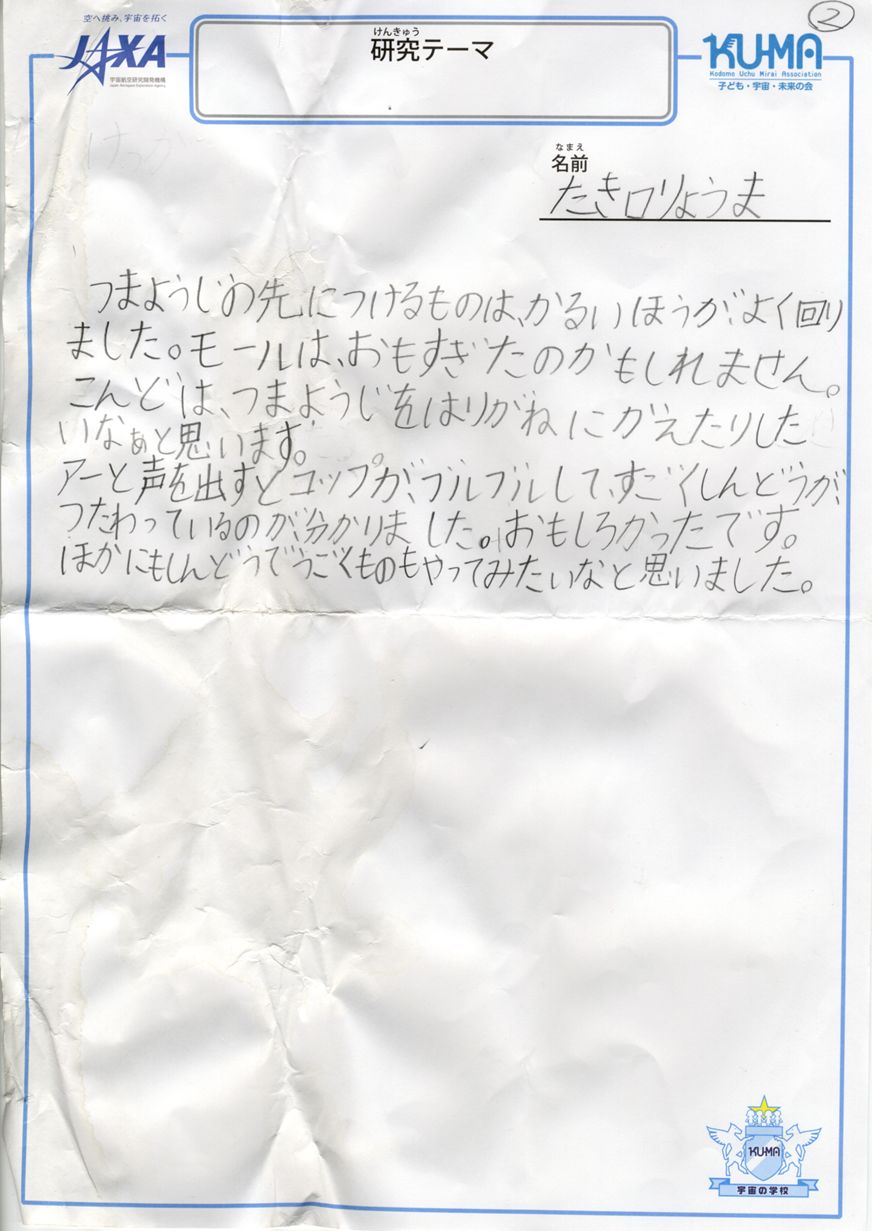 空へ挑み、宇宙を拓く
JAXA
宇宙航空研究開発機構
Japan Aerospace Exploration Agency
けんきゅう
研究テーマ
②
KU-MA
Kodomo Uchu Mirai Association
子ども・宇宙・未来の会
けっか
なまえ
名前
たき口りょうま
つまようじの先につけるものは、かるいほうが、よく回り
ました。モールは、おもすぎたのかもしれません。
こんどは、つまようじをはりがねにかえたりした
いなぁと思います。
アーと声を出すとコップが、ブルブルして、すごくしんどうが、
つたわっているのが、分かりました。おもしろかったです。
ほかにもしんどうでうごくものもやってみたいなと思いました。
KU-MA
宇宙の学校